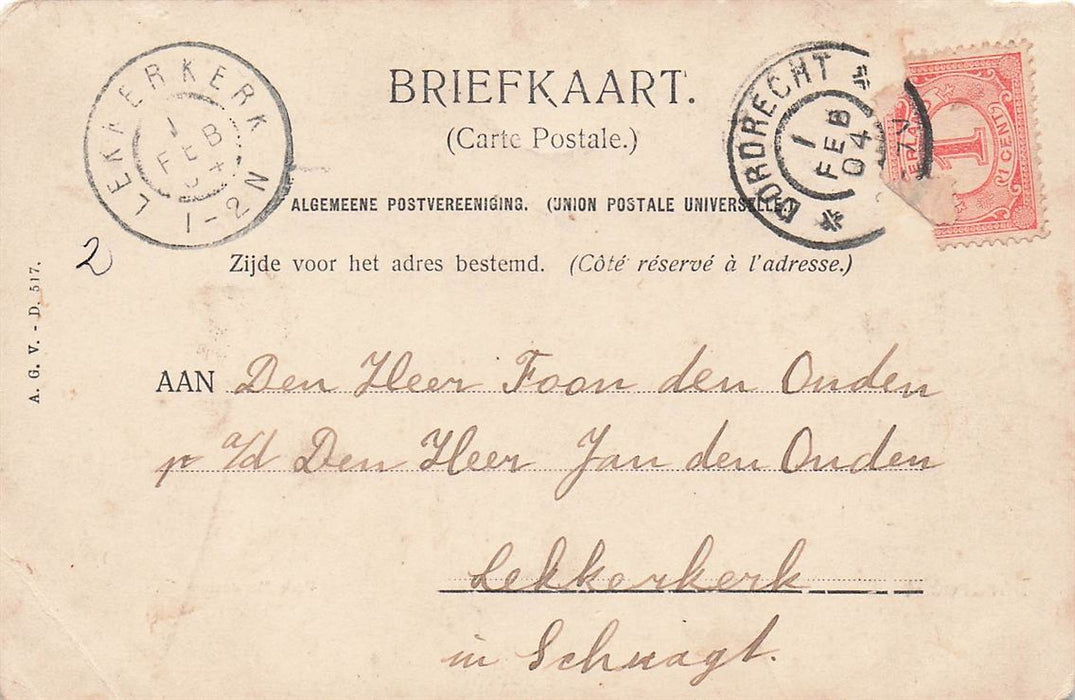 LEKKERKERK
1
FEB
04
1-2N
BRIEFKAART.
(Carte Postale.)
DORDRECHT
1
FEB
04
7N
1
(1 CENT)
ALGEMEENE POSTVEREENIGING. (UNION POSTALE UNIVERSELLE.)
2
Zijde voor het adres bestemd. (Côté réservé à l'adresse.)
A. G. V. - D. 517.
AAN Den Heer Foon den Ouden
p a/d Den Heer Jan den Ouden
Lekkerkerk
in Schuagt.